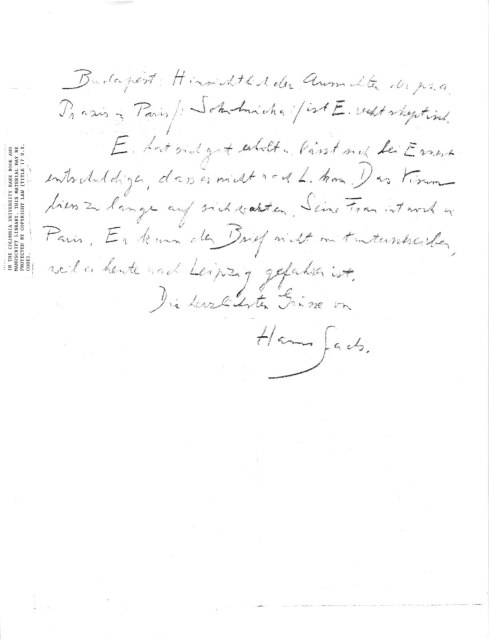 Budapest. Hinsichtlich der Aussichten der psa.
Praxis in Paris ist E. recht skeptisch.
E. hat sich gut erholt u. lässt sich bei Ernest
entschuldigen, dass er nicht nach L. kam. Das Visum
liess zu lange auf sich warten. Seine Frau ist noch in
Paris. Er kann den Brief nicht mitunterschreiben,
weil er heute nach Leipzig gefahren ist.
Die herzlichsten Grüsse von
Hanns Sachs.
IN THE COLUMBIA UNIVERSITY RARE BOOK AND
MANUSCRIPT LIBRARY. THIS MATERIAL MAY BE
PROTECTED BY COPYRIGHT LAW (TITLE 17 U.S.
CODE).